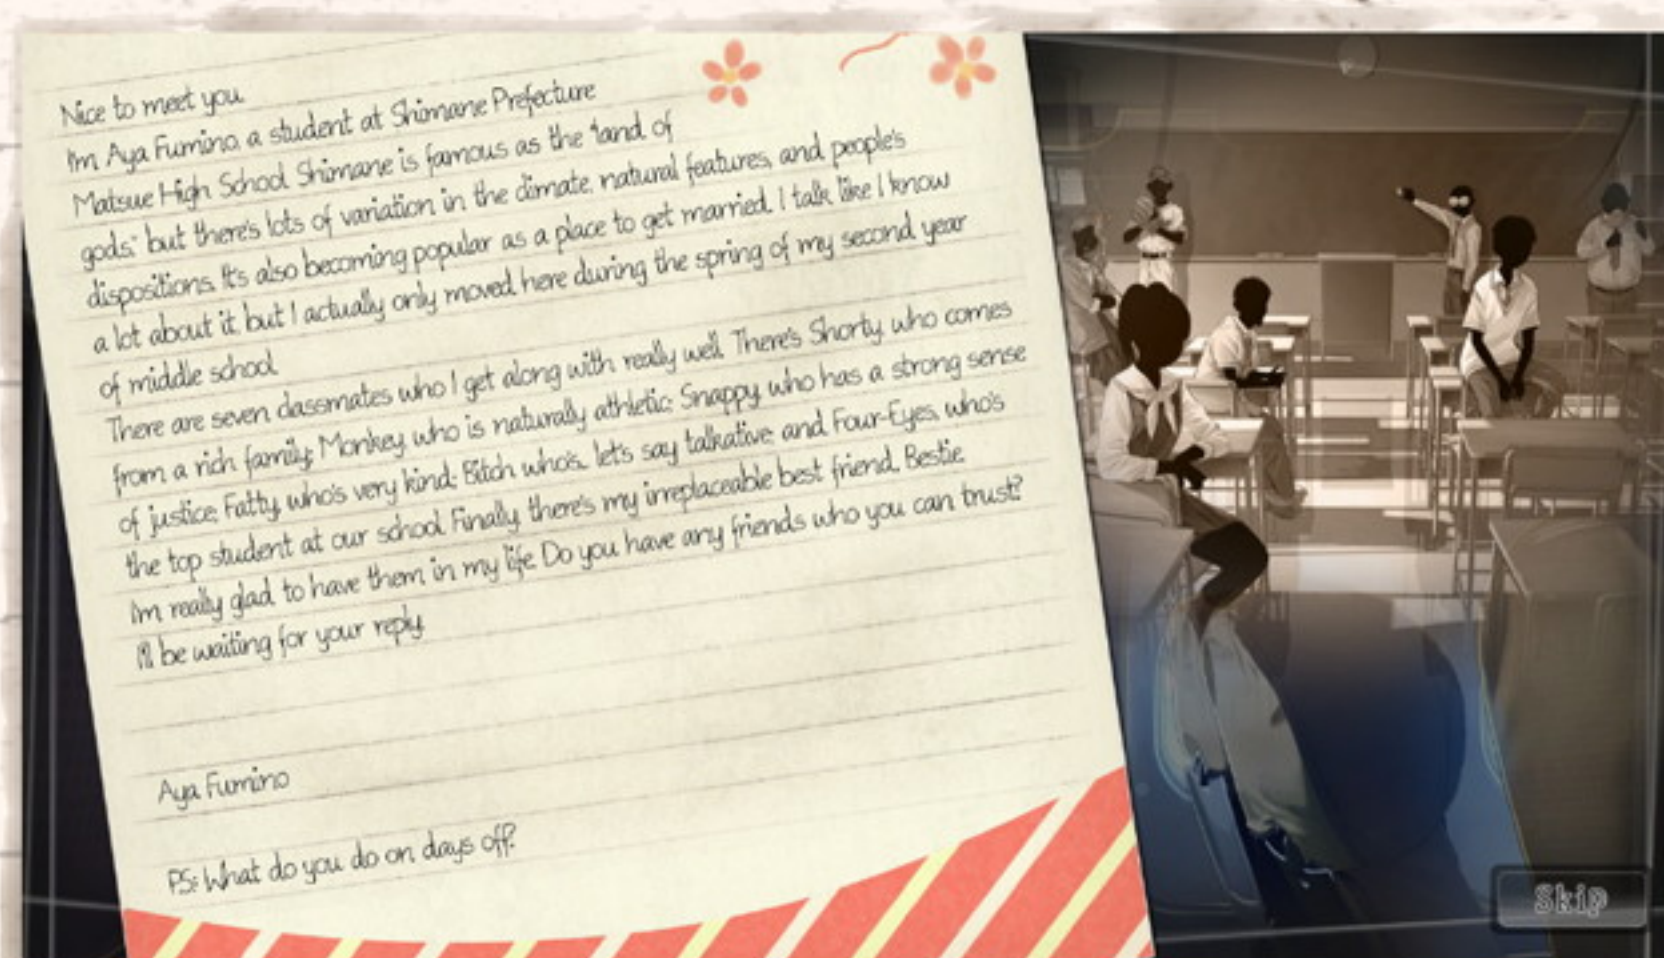 Nice to meet you.
I'm Aya Fumino, a student at Shimane Prefecture
Matsue High School. Shimane is famous as the "land of
gods," but there's lots of variation in the climate, natural features, and people's
dispositions. It's also becoming popular as a place to get married. I talk like I know
a lot about it, but I actually only moved here during the spring of my second year
of middle school.
There are seven classmates who I get along with really well. There's Shorty, who comes
from a rich family; Monkey, who is naturally athletic; Snappy, who has a strong sense
of justice; Fatty, who's very kind; Bitch, who's, let's say, talkative; and Four-Eyes, who's
the top student at our school. Finally, there's my irreplaceable best friend, Bestie.
I'm really glad to have them in my life. Do you have any friends who you can trust?
I'll be waiting for your reply.
Aya Fumino
PS: What do you do on days off?
Skip